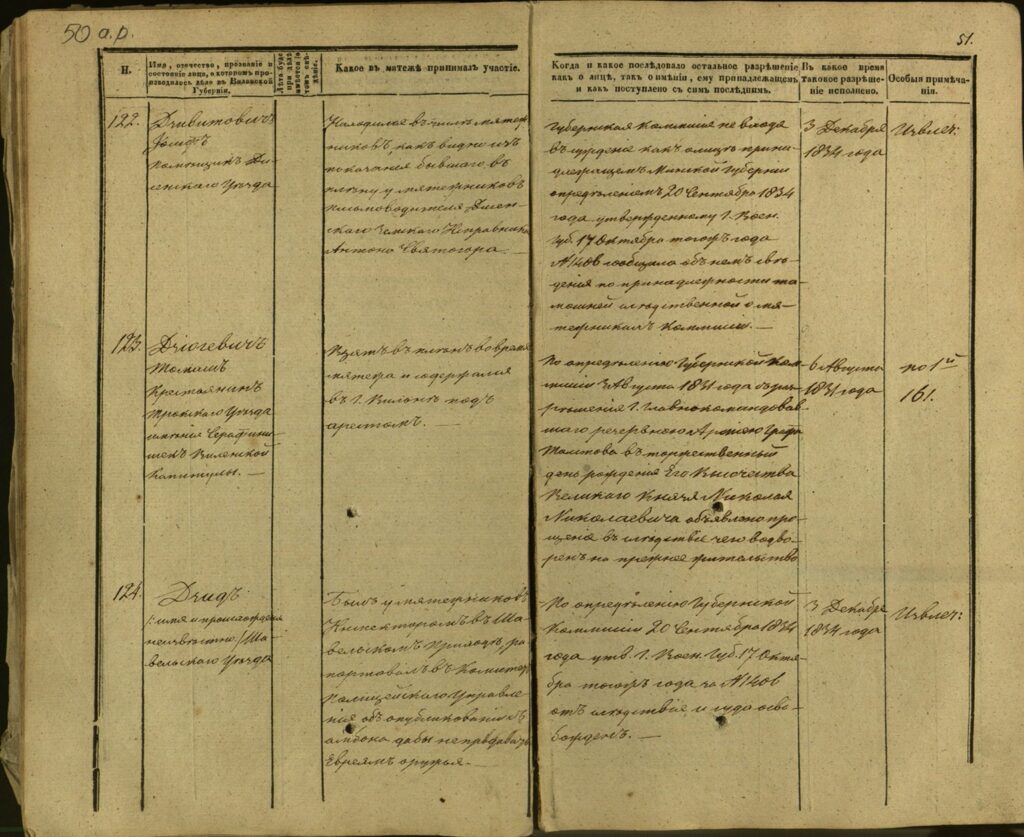 50 а.р.
51.
Н.
Имя, отечество, прозваніе и
состояніе лица, о которомъ про-
изводилось дѣло въ Виленской
Губерніи.
Какое въ мятежѣ принималъ участіе.
Когда и какое послѣдовало остальное разрѣшеніе,
какъ о лицѣ, такъ о имѣніи, ему принадлежащемъ
и какъ поступлено съ симъ послѣднимъ.
Въ какое время
таковое разрѣше-
ніе исполнено.
Особыя примѣча-
нія.
122.
Дзивитовичъ
Іосифъ
Помѣщикъ Ди-
сенскаго Уѣзда
Находился въ числѣ мятеж-
никовъ, какъ видно изъ
показанія бывшаго въ
плѣну у мятежниковъ
письмоводителя Дисен-
скаго Земскаго Исправника
Антона Святогора. —
Губернская Коммисія не входя
въ сужденіе какъ о лицѣ прина-
длежащемъ Минской Губерніи
опредѣленіемъ 20 Сентября 1834
года утвержденному Г. Воен.
Губ. 17 Октября тогожъ года
№ 1408 сообщила объ немъ свѣ-
денія по принадлежности та-
мошней слѣдственной о мя-
тежникахъ Коммисіи. —
3 Декабря
1834 года
Извлеч:
123.
Дзюгевичъ
Томашъ
Крестьянинъ
Трокскаго Уѣзда
имѣнія Серафини-
шекъ Виленской
Капитулы. —
Взятъ въ плѣнъ во время
мятежа и содержался
въ г. Вильнѣ подъ
арестомъ. —
По опредѣленію Губернской Ком-
мисіи 3 Августа 1831 года съ раз-
рѣшенія Г. Главнокомандовав-
шаго резервною Арміею Графа
Толстова въ торжественный
день рожденія Его Высочества
Великаго Князя Николая
Николаевича объявлено про-
щеніе въ слѣдствіе чего водво-
ренъ на прежнее жительство
6 Августа
1831 года
по 1й
161.
124.
Дзидъ
/: имя и происхожденіе
неизвѣстно :/ Ша-
вельскаго Уѣзда
Былъ у мятежниковъ
Инспекторомъ въ Ша-
вельскомъ Приходѣ, ра-
портовалъ въ Комитетъ
Полицейскаго Управле-
нія объ опубликованіи съ
амвона дабы не продавать
Евреямъ оружья. —
По опредѣленію Губернской
Коммисіи 20 Сентября 1834
года утв. Г. Воен. Губ. 17 Октя-
бря тогожъ года за № 1408
отъ слѣдствія и суда осво-
божденъ. —
3 Декабря
1834 года
Извлеч: